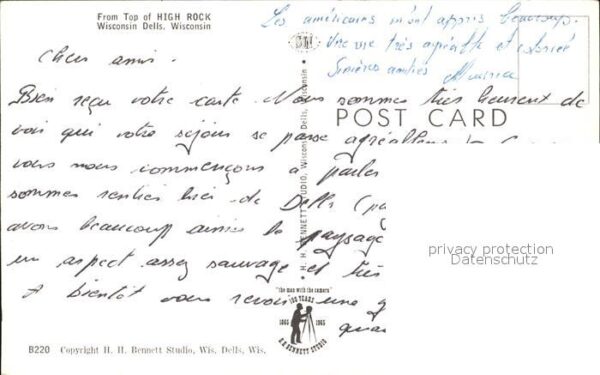 From Top of HIGH ROCK
Wisconsin Dells, Wisconsin
Les américains m'ont appris beaucoup.
Une vie très agréable et
amitiés
Chers amis.
Bien reçu votre carte. Nous sommes très heureux de
voir que votre séjour se passe
POST CARD
vous nous commençons à parler
sommes rentrés hier de Dells
avons beaucoup aimé le paysage
un aspect assez sauvage et très
A bientôt vous revoir une
H. H. BENNETT STUDIO, Wisconsin Dells, Wisconsin
privacy protection
Datenschutz
"the man with the camera"
100 YEARS
1865 1965
H.H. BENNETT STUDIO
B220 Copyright H. H. Bennett Studio, Wis. Dells, Wis.